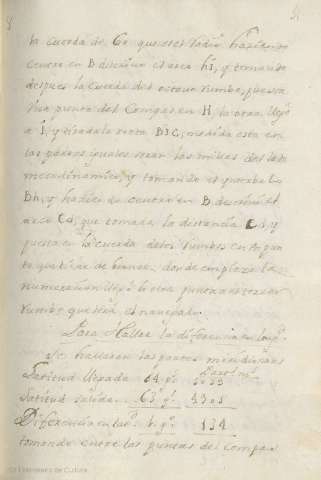 8
la cuerda de 60 que es el radio haziendo
centro en B descrivir el arco hi, y tomando
despues la cuerda del octavo rumbo, puesta
una punta del Compas en H la otra llegò
a I y tirada la recta BIC, medida esta en
las partes iguales seran las millas del lado
meridinamico y tomando el
Bh, y haziendo centro en B descrivir el
arco Cd, que tomada la distancia Cd, y
puesta en la cuerda delos Rumbos en
donde empieza la
numeracion llegò la otra punta al tercer
rumbo que sera el navegado.
Para Hallar la diferencia en long.
Se hallaran las partes meridianas
Part. m.
Latitud llegada 64 g. 5039
Latitud salida 63 g. 4905
Diferencia en lat. 1. g. 134
tomando entre las puntas del Compas
Ministerio de Cultura